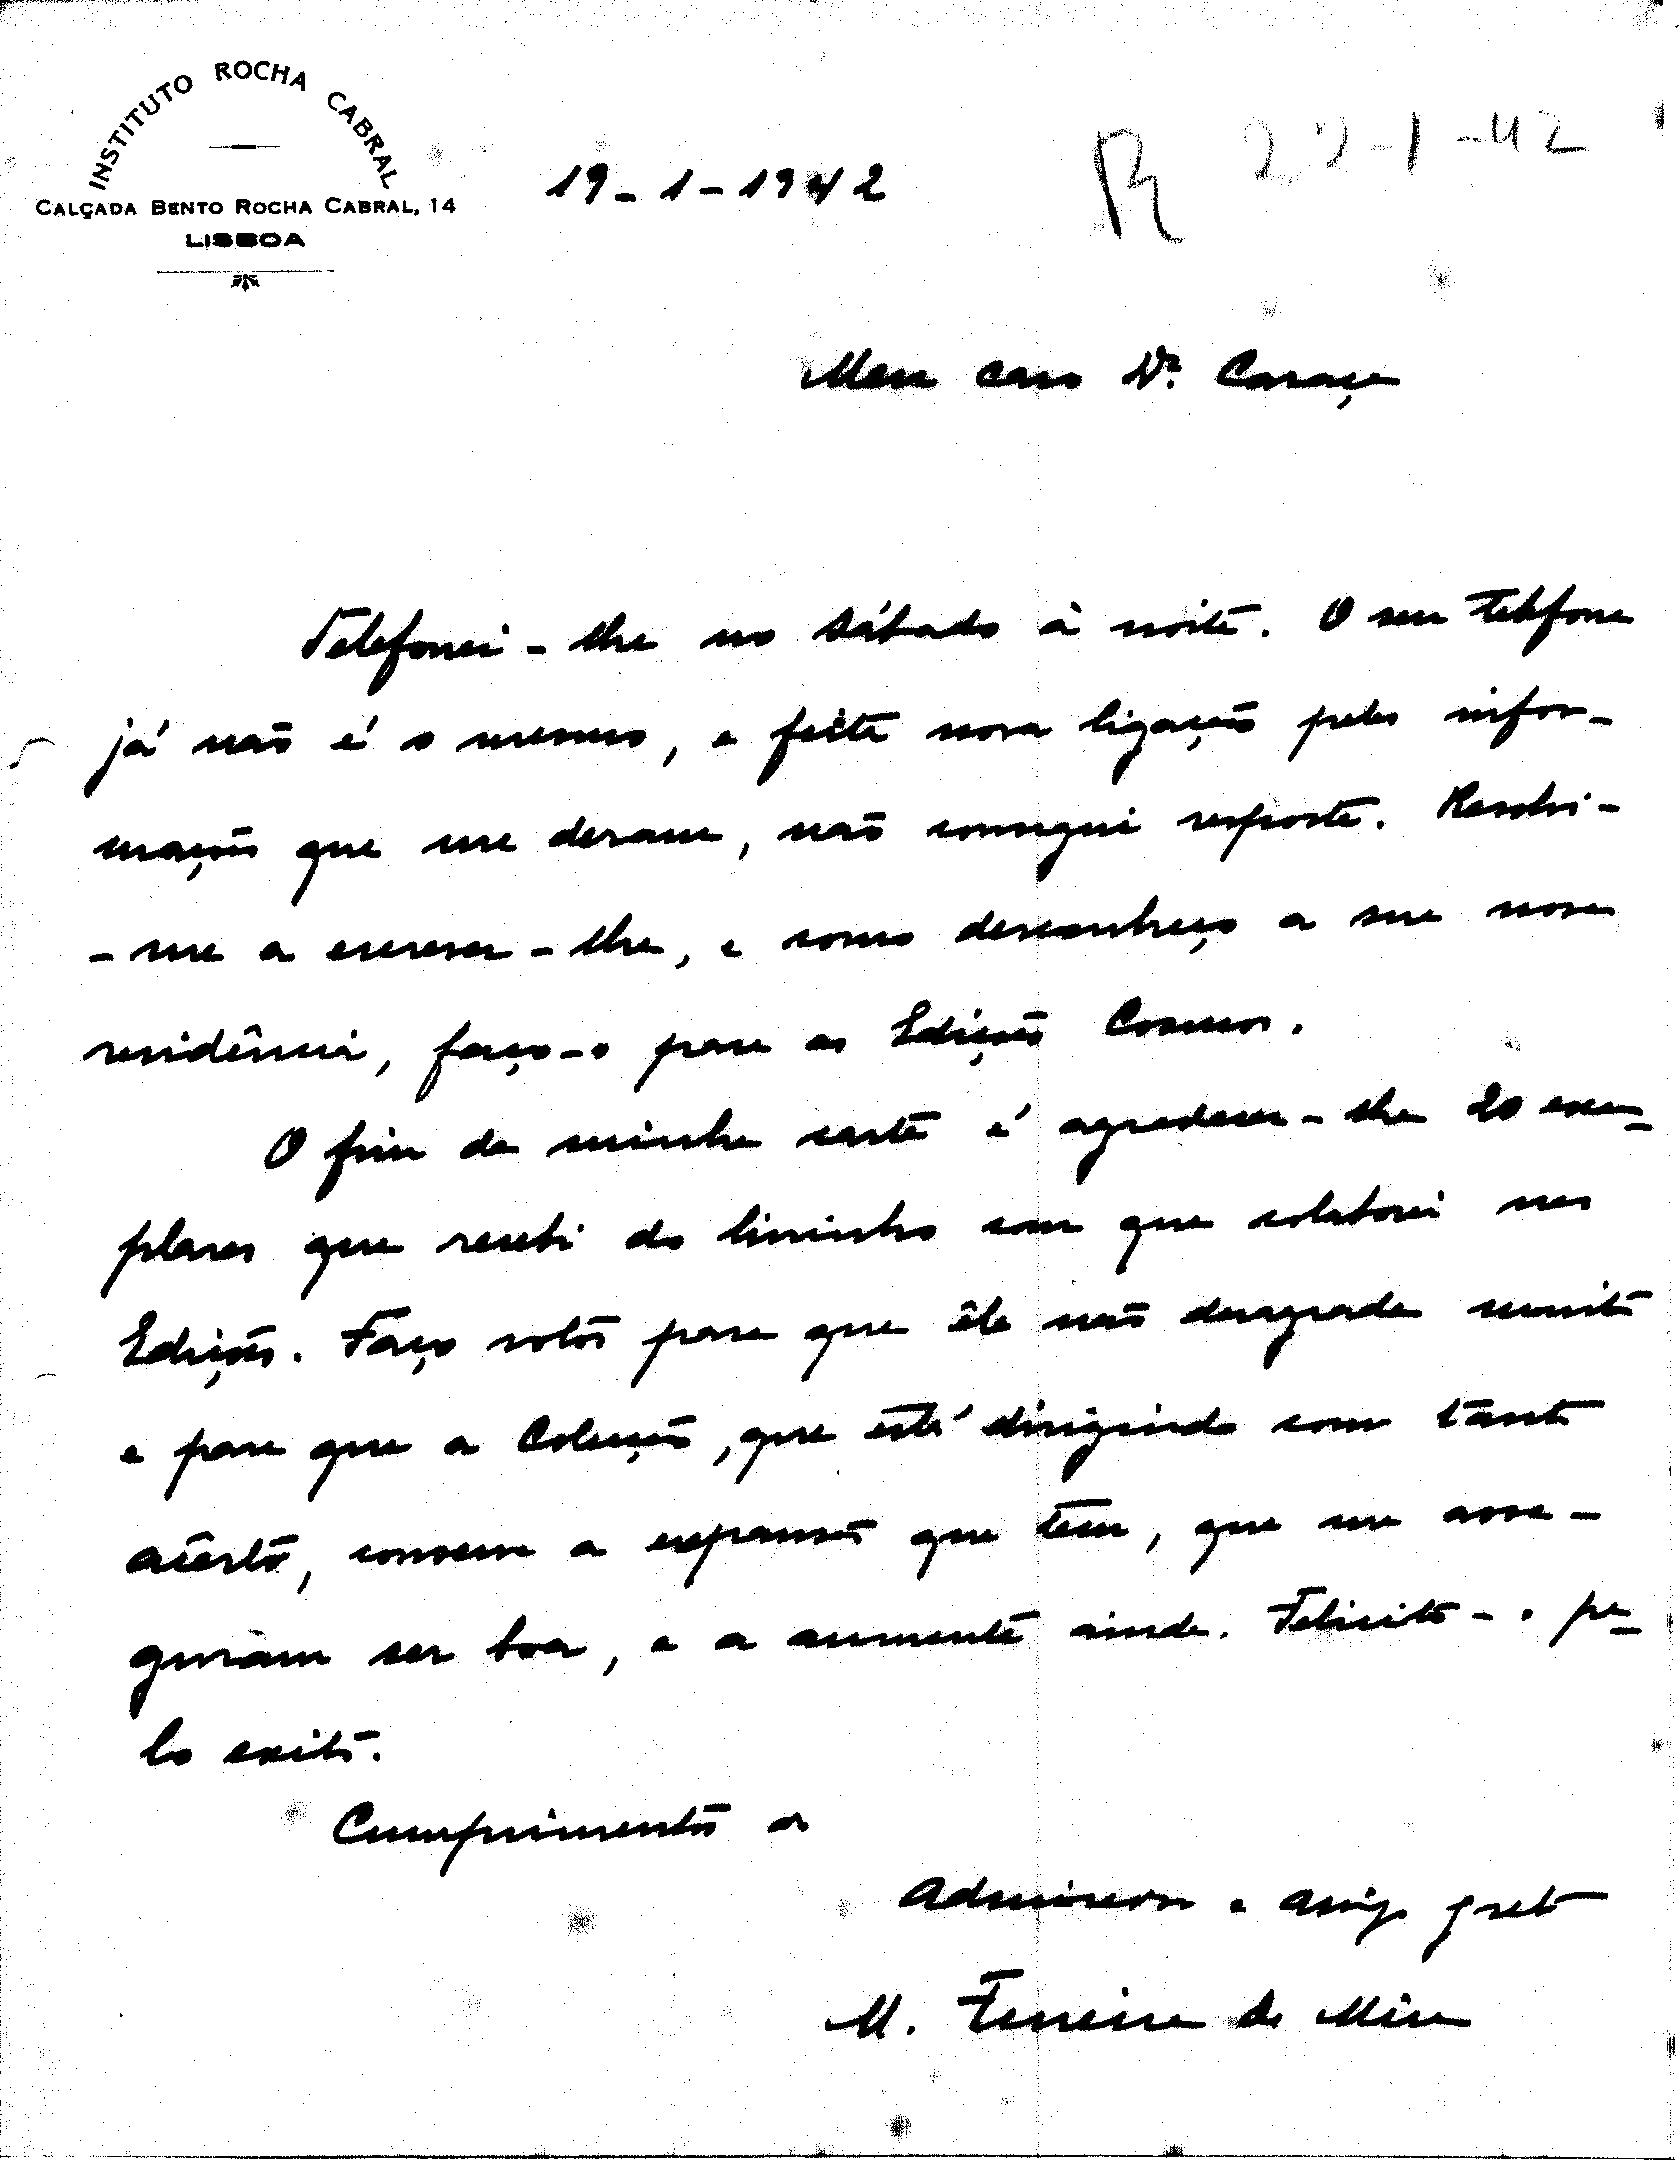 INSTITUTO ROCHA CABRAL
CALÇADA BENTO ROCHA CABRAL, 14
LISBOA
19-1-1942
R 22-1-42
Meu caro Dr. Caraça
Telefonei-lhe no sábado à noite. O seu telefone
já não é o mesmo, e feita nova ligação pelas infor-
mações que me deram, não consegui resposta. Resolvi-
-me a escrever-lhe, e como desconheço a sua nova
residência, faço-o para as Edições Cosmos.
O fim da minha carta é agradecer-lhe 20 exem-
plares que recebi do livrinho com que colaborei nas
Edições. Faço votos para que êle não desagrade muito
e para que a Coleção, que está dirigindo com tanto
acêrto, conserve a expansão que tem, que me asse-
guram ser boa, e a aumente ainda. Felicito-o pe-
lo exito.
Cumprimentos do
Admirador e amigo grato
M. Ferreira de Mira